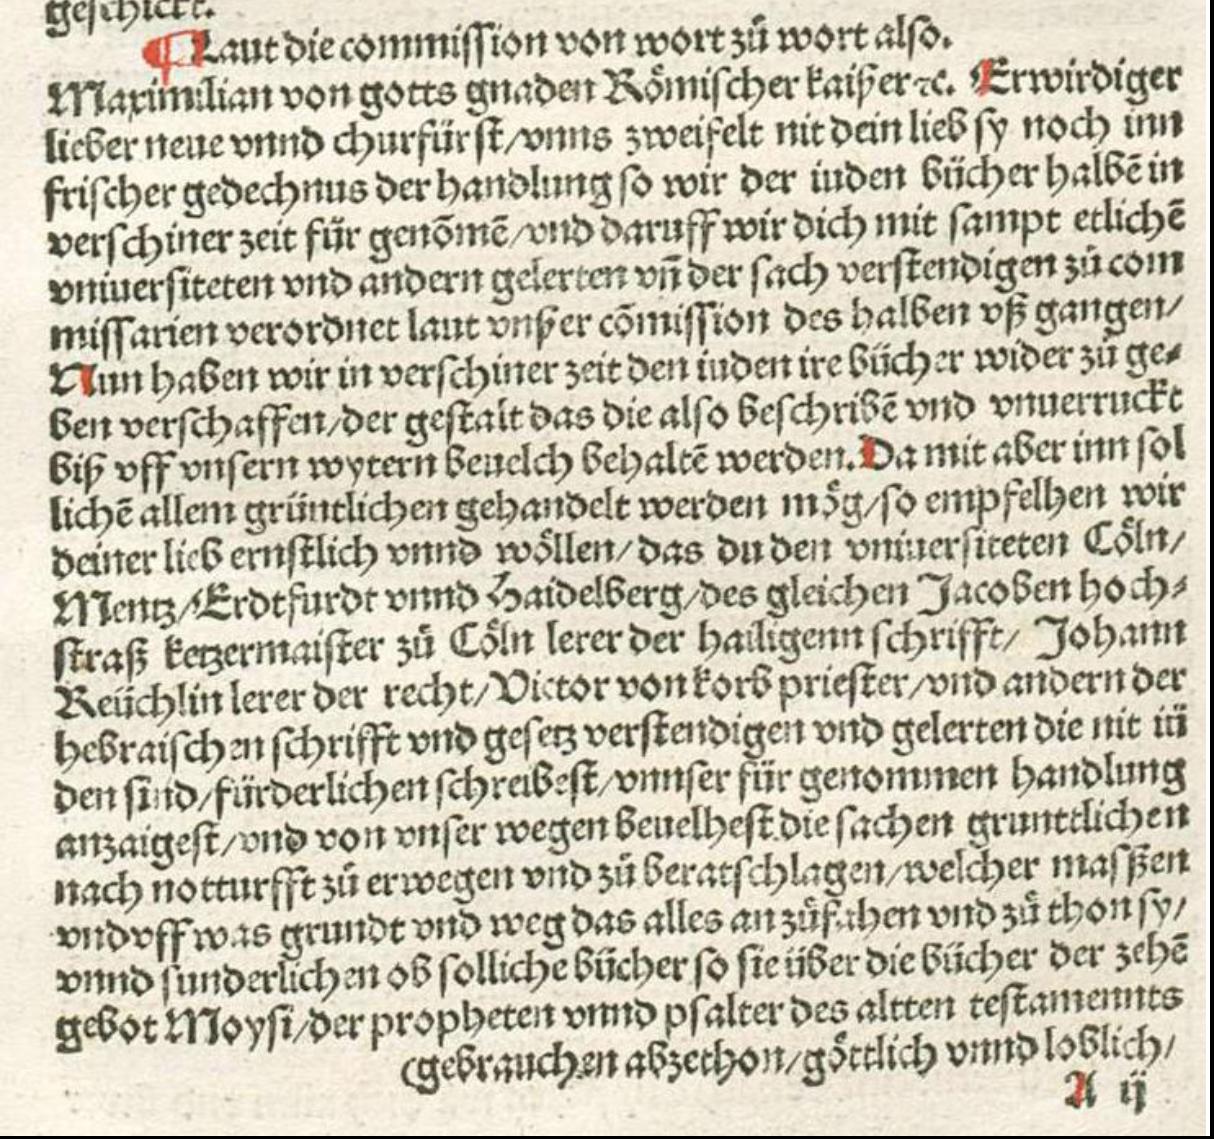 geschickt.
¶ Laut die commission von wort zů wort also.
Maximilian von gotts gnaden Rőmischer kaißer ꝛc. Erwirdiger
lieber neue vnnd churfürst/vnns zweifelt nit dein lieb sy noch inn
frischer gedechnus der handlung so wir der iuden bücher halbē in
verschiner zeit für genōmē/vnd daruff wir dich mit sampt etlichē
vniuersiteten vnd andern gelerten vn̄ der sach verstendigen zů com
missarien verordnet laut vnßer cōmission des halben vß gangen/
Nun haben wir in verschiner zeit den iuden ire bücher wider zů ge⸗
ben verschaffen/der gestalt das die also beschribē vnd vnuerruckt
biß vff vnsern wytern beuelch behaltē werden. Da mit aber inn sol
lichē allem grüntlichen gehandelt werden mőg/so empfelhen wir
deiner lieb ernstlich vnnd wőllen/das du den vniuersiteten Cőln/
Mentz/Erdtfurdt vnnd Haidelberg/des gleichen Jacoben hoch⸗
straß ketzermaister zů Cőln lerer der hailigenn schrifft/ Johann
Reüchlin lerer der recht/Victor von korb priester/vnd andern der
hebraischen schrifft vnd gesetz verstendigen vnd gelerten die nit iü
den sind/fürderlichen schreibest/vnnser für genommen handlung
anzaigest/vnd von vnser wegen beuelhest die sachen grunttlichen
nach notturfft zů erwegen vnd zů beratschlagen/welcher masßen
vnd vff was grundt vnd weg das alles an zůfahen vnd zů thon sy/
vnnd sunderlichen ob solliche bücher so sie über die bücher der zehē
gebot Moysi/der propheten vnnd psalter des altten testamennts
(gebrauchen abzethon/gőttlich vnnd loblich/
A ij